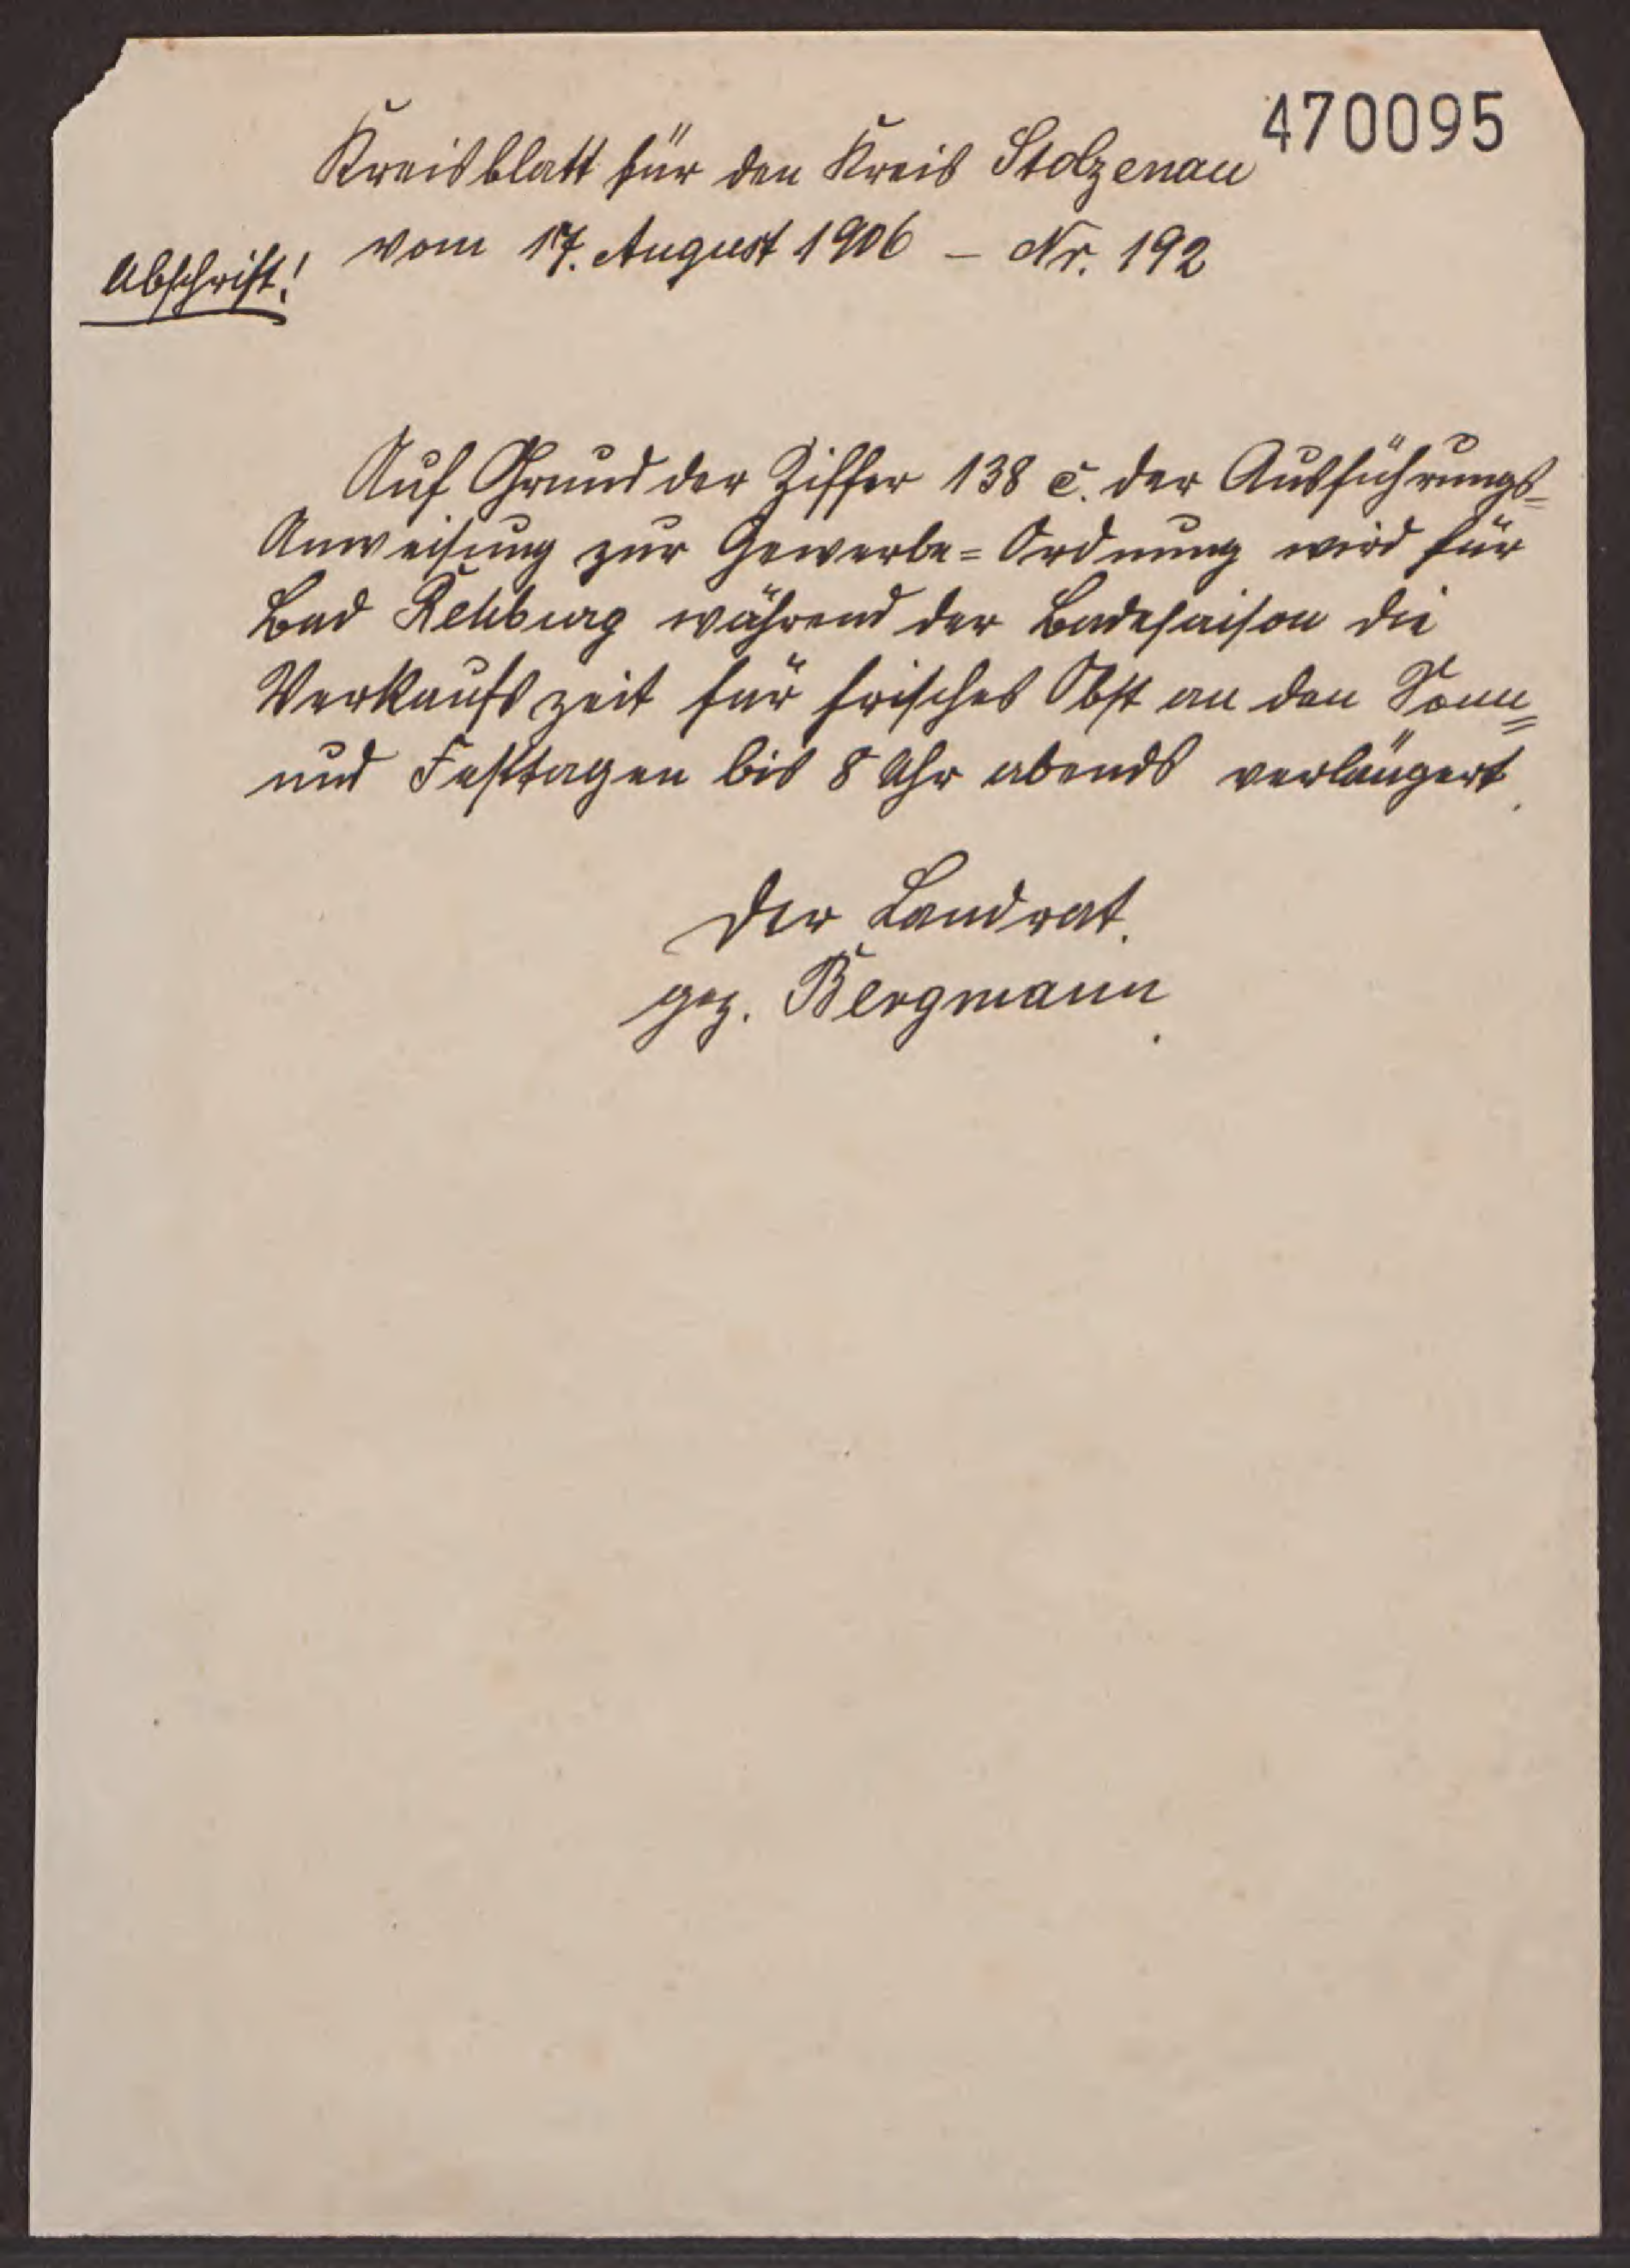 470095
Kreisblatt für den Kreis Stolzenau
vom 17. August 1906 – Nr. 192
Abschrift!
Auf Grund der Ziffer 138 c. der Ausführungs=
Anweisung zur Gewerbe=Ordnung wird für
Bad Rehburg während der Badesaison die
Verkaufszeit für frisches Obst an den Sonn=
und Festtagen bis 8 Uhr abends verlängert.
Der Landrat.
gez. Bergmann.